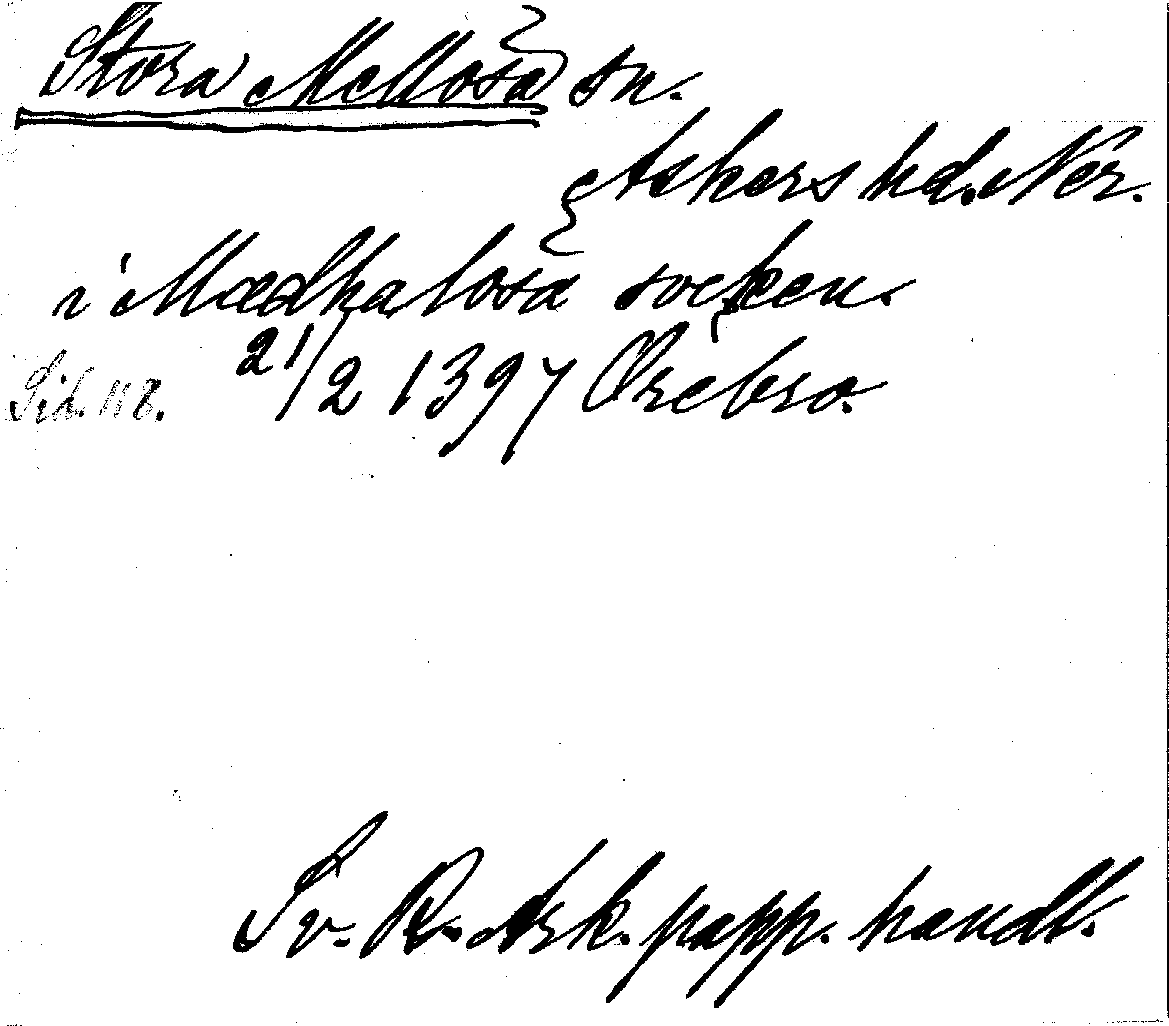 Stora Mellösa sn.
Askers hd. Ner.
i Mædhalosa socken.
Sid. 118. 21/2 1397 Örebro.
Sv. R. Ark. papp. handl.